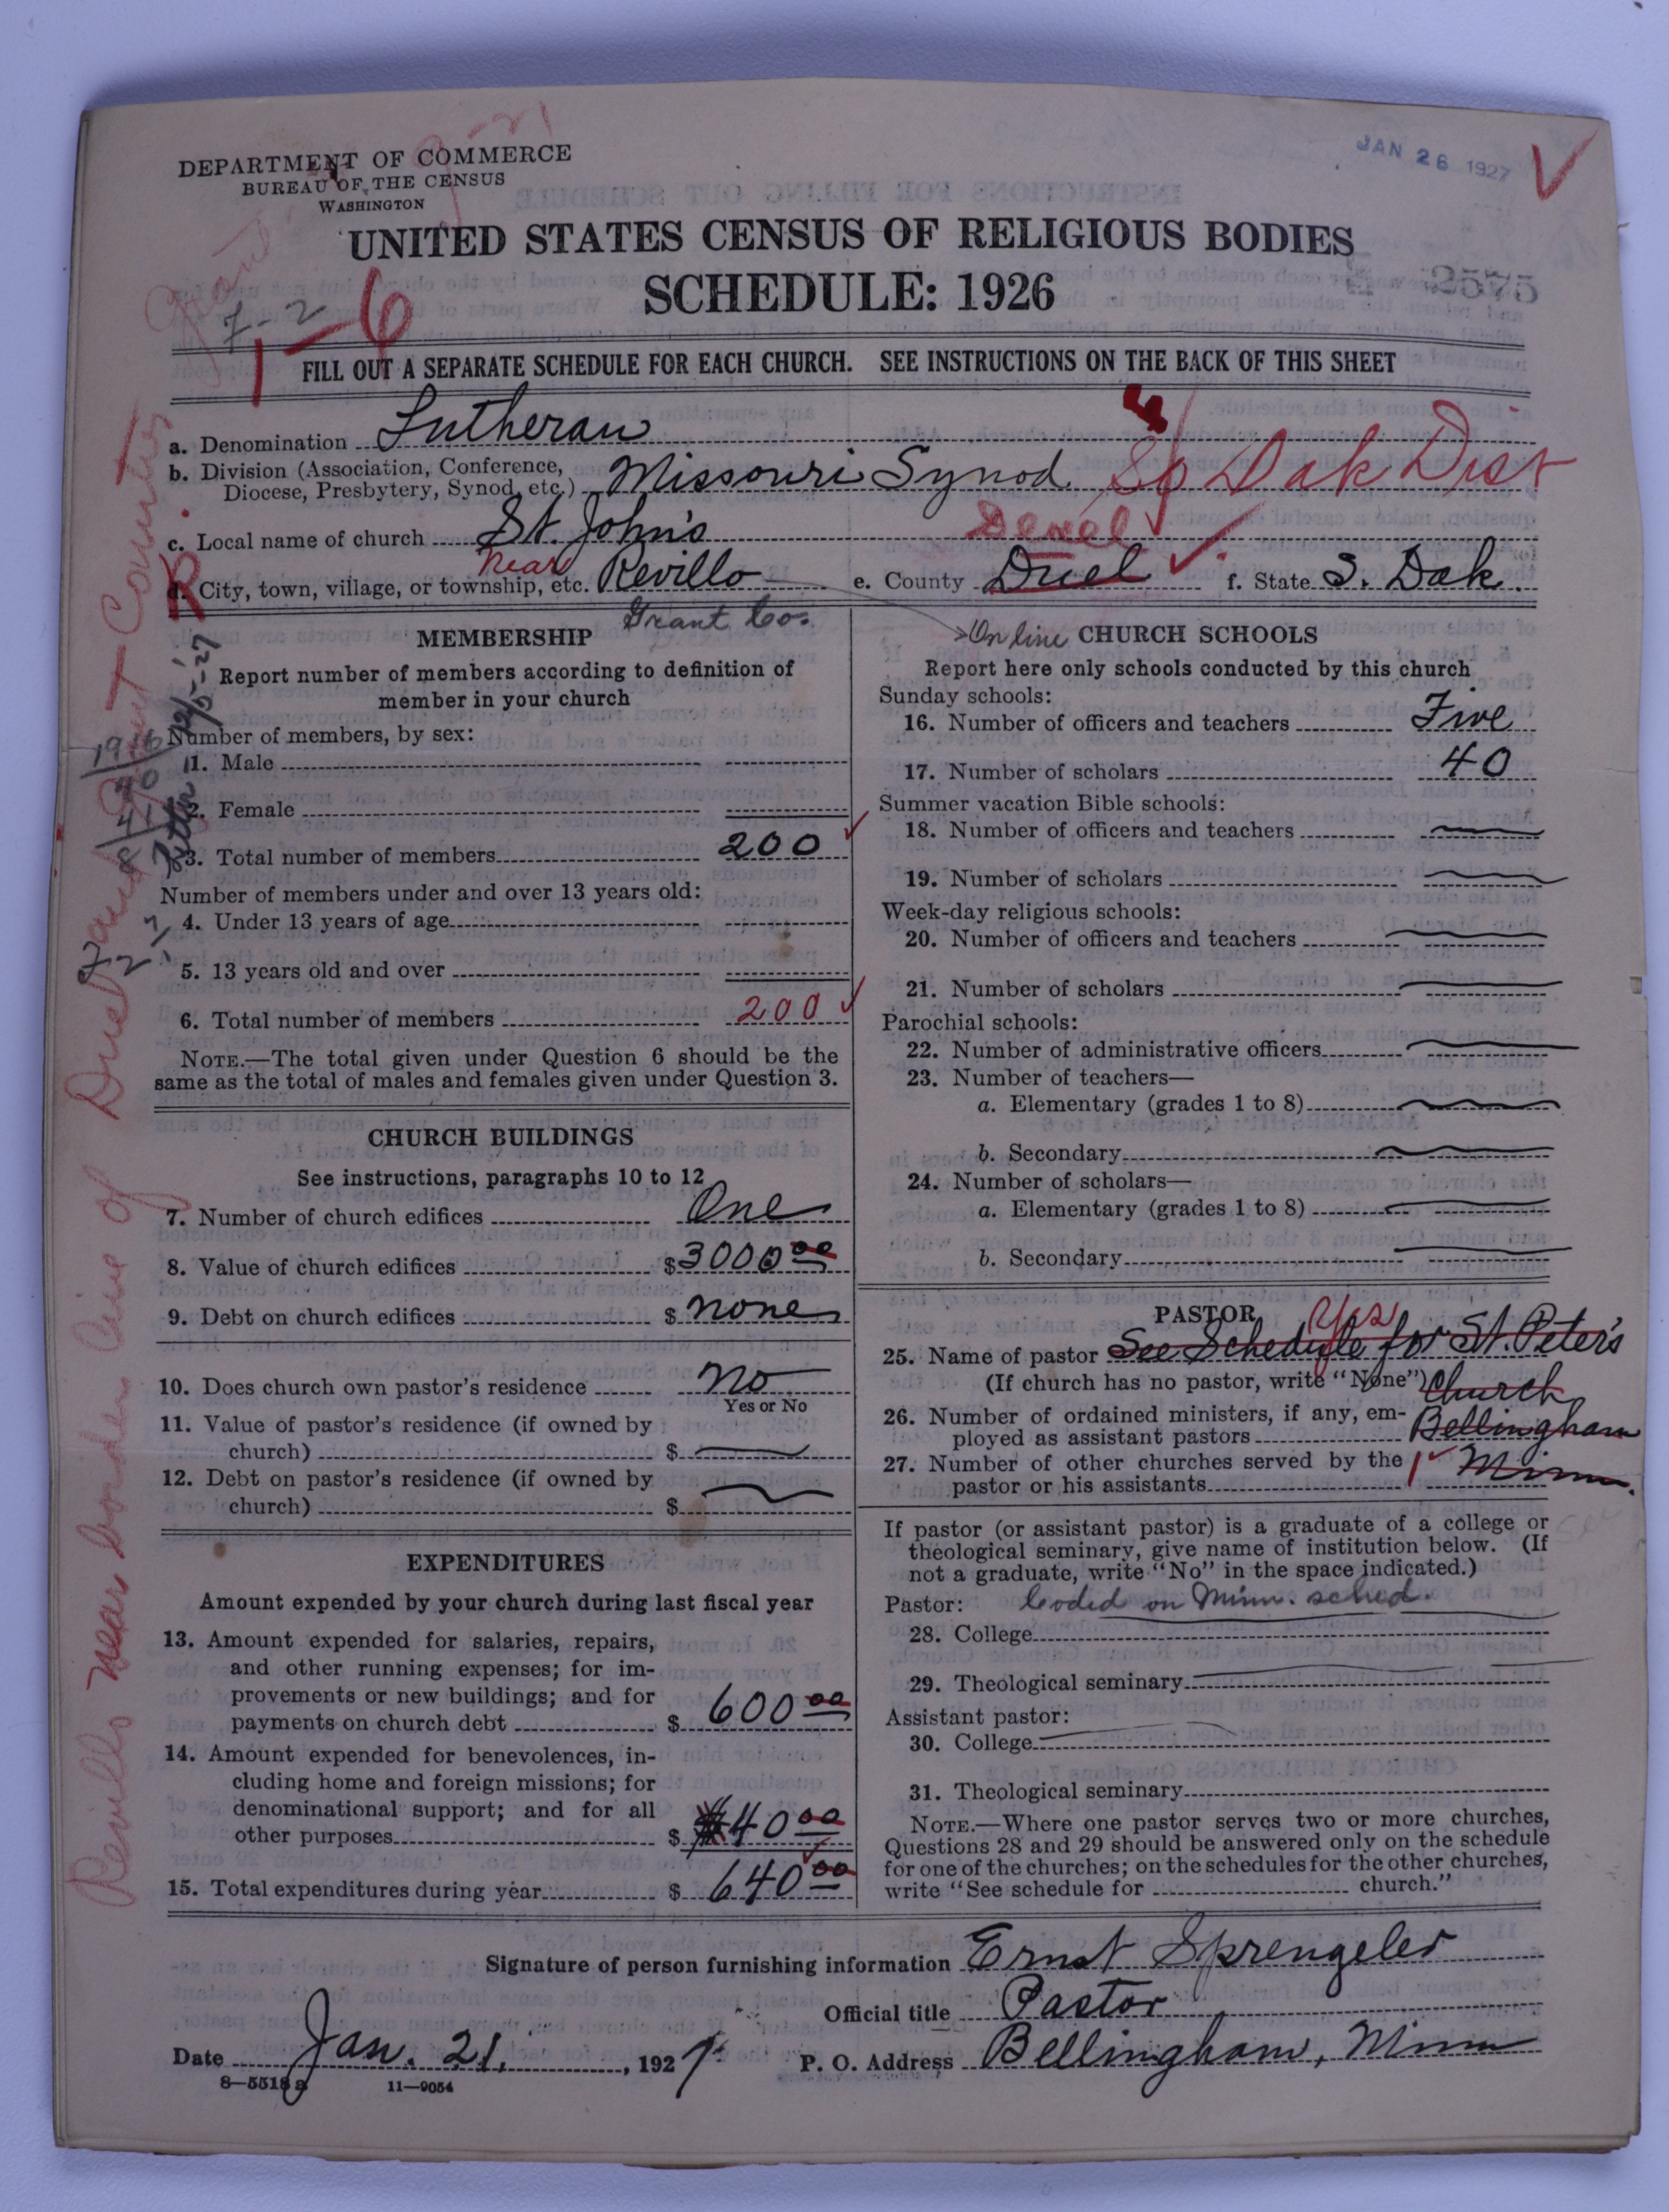 DEPARTMENT OF COMMERCE
BUREAU OF THE CENSUS
WASHINGTON
JAN 26 1927
UNITED STATES CENSUS OF RELIGIOUS BODIES
SCHEDULE: 1926
7-2
1-6
FILL OUT A SEPARATE SCHEDULE FOR EACH CHURCH. SEE INSTRUCTIONS ON THE BACK OF THIS SHEET
a. Denomination Lutheran
b. Division (Association, Conference, Diocese, Presbytery, Synod, etc.) Missouri Synod So Dak Dist
c. Local name of church St. John's
Deuel
d. City, town, village, or township, etc. Near Revillo e. County Duel f. State S. Dak.
Grant Co.
Revillo near border line of Duel and Grant Counties
MEMBERSHIP
Report number of members according to definition of
member in your church
Number of members, by sex:
1. Male
2. Female
3. Total number of members 200
Number of members under and over 13 years old:
4. Under 13 years of age
5. 13 years old and over
6. Total number of members 200
NOTE.—The total given under Question 6 should be the
same as the total of males and females given under Question 3.
CHURCH BUILDINGS
See instructions, paragraphs 10 to 12
7. Number of church edifices One
8. Value of church edifices $3000 00
9. Debt on church edifices $ none
10. Does church own pastor's residence no
Yes or No
11. Value of pastor's residence (if owned by
church) $
12. Debt on pastor's residence (if owned by
church) $
EXPENDITURES
Amount expended by your church during last fiscal year
13. Amount expended for salaries, repairs,
and other running expenses; for im-
provements or new buildings; and for
payments on church debt $ 600 00
14. Amount expended for benevolences, in-
cluding home and foreign missions; for
denominational support; and for all
other purposes $ 40 00
15. Total expenditures during year $ 640 00
On line CHURCH SCHOOLS
Report here only schools conducted by this church
Sunday schools:
16. Number of officers and teachers Five
17. Number of scholars 40
Summer vacation Bible schools:
18. Number of officers and teachers
19. Number of scholars
Week-day religious schools:
20. Number of officers and teachers
21. Number of scholars
Parochial schools:
22. Number of administrative officers
23. Number of teachers—
a. Elementary (grades 1 to 8)
b. Secondary
24. Number of scholars—
a. Elementary (grades 1 to 8)
b. Secondary
PASTOR
25. Name of pastor See Schedule for St. Peter's
(If church has no pastor, write "None") Church
26. Number of ordained ministers, if any, em-
ployed as assistant pastors Bellingham
27. Number of other churches served by the 1 Minn.
pastor or his assistants
If pastor (or assistant pastor) is a graduate of a college or
theological seminary, give name of institution below. (If
not a graduate, write "No" in the space indicated.)
Pastor: Coded on Minn. sched.
28. College
29. Theological seminary
Assistant pastor:
30. College
31. Theological seminary
NOTE.—Where one pastor serves two or more churches,
Questions 28 and 29 should be answered only on the schedule
for one of the churches; on the schedules for the other churches,
write "See schedule for church."
Signature of person furnishing information Ernst Sprengeler
Official title Pastor
Date Jan. 21, 1927 P. O. Address Bellingham, Minn
8—5518 a 11—9054